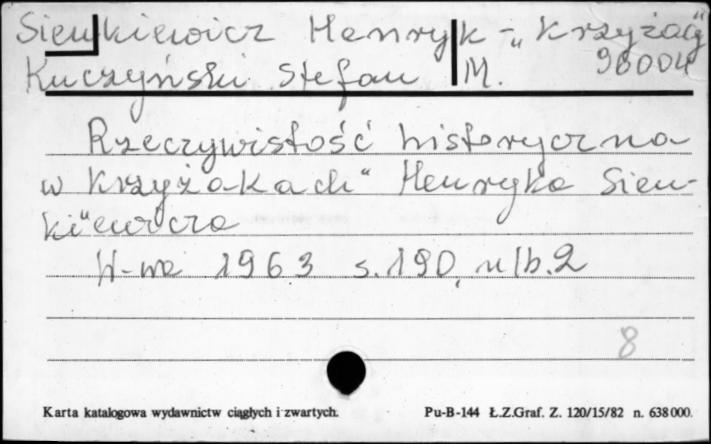 Sienkiewicz Henryk - „Krzyżacy"
98004
Kuczyński Stefan M.
Rzeczywistość historyczna
w Krzyżakach" Henryka Sien-
ki"ewicza
W-wa 1963 s. 190, nlb. 2
8
Karta katalogowa wydawnictw ciągłych i zwartych. Pu-B-144 Ł.Z.Graf. Z. 120/15/82 n. 638000.